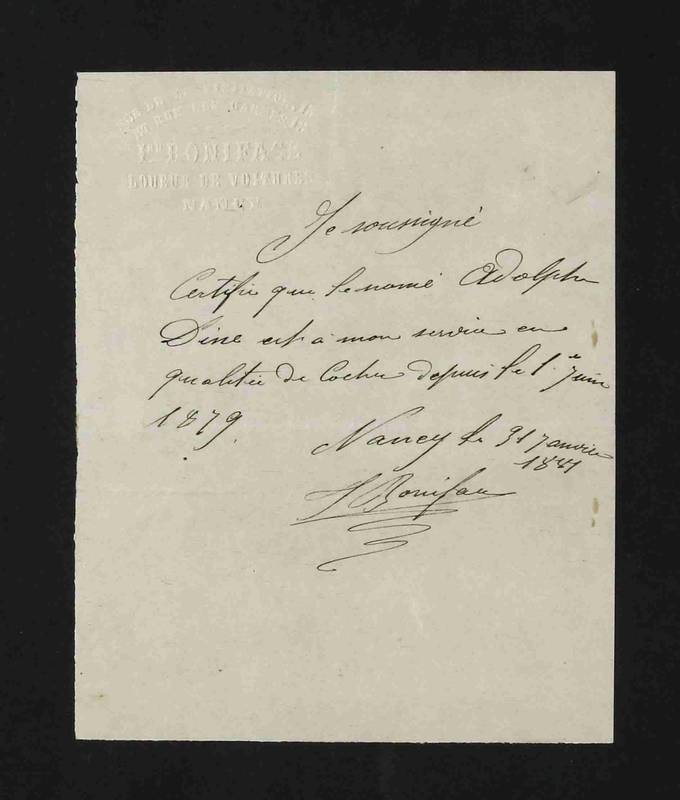 BONIFACE
LOUEUR DE VOITURES
NANCY
Je soussigné
Certifie que le nomé Adolphe
Dine est à mon service en
qualitée de Cocher depuis le 1.e Juin
1879.
Nancy le 31 Janvier
1881
Boniface